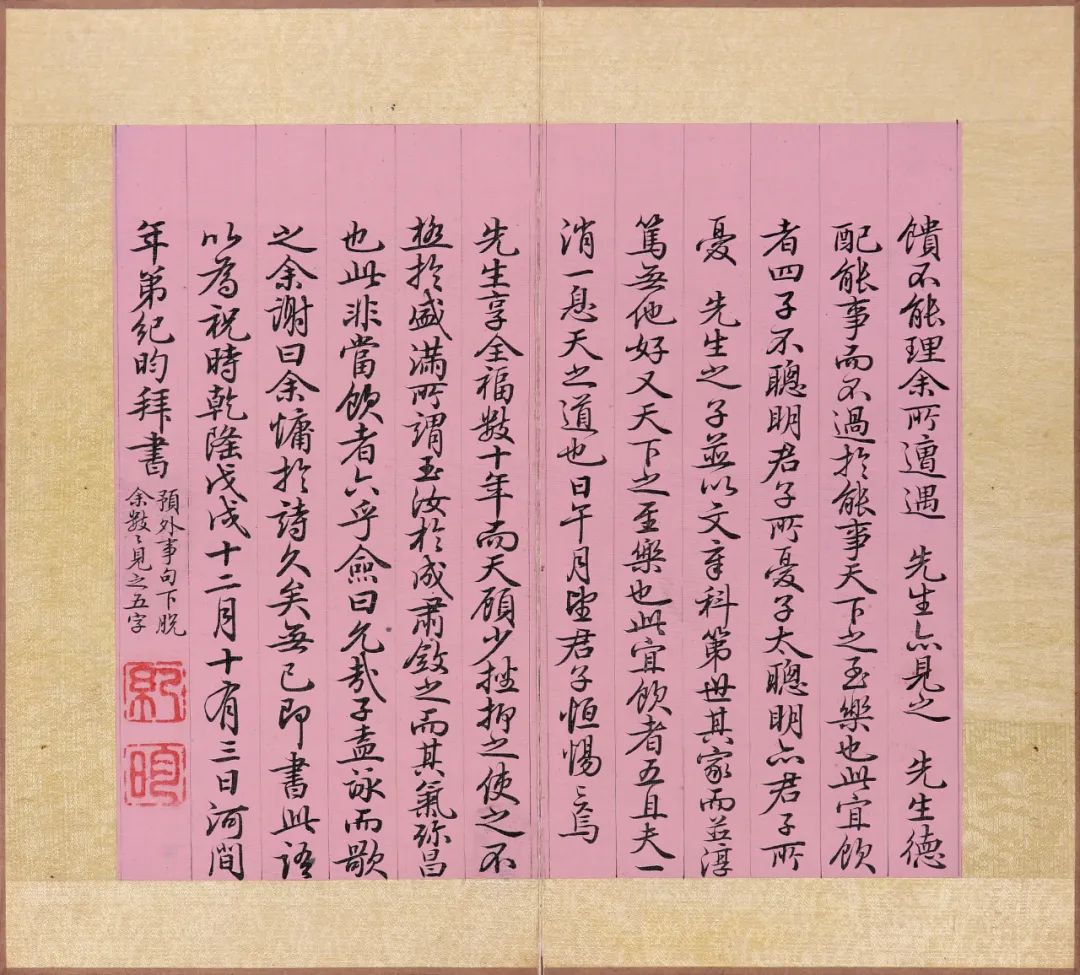 饋不能理余所遭遇 先生亦見之 先生德
配能事而不過於能事天下之至樂也此宜飲
者四子不聰明君子所憂子太聰明亦君子所
憂 先生之子並以文章科第世其家而並淳
篤無他好又天下之至樂也此宜飲者五且夫一
消一息天之道也日午月望君子恒惕惕焉
先生享全福數十年而天顧少挫抑之使之不
極於盛滿所謂玉汝於成肅斂之而其氣弥昌
也此非當飲者六乎僉曰允哉子盍詠而歌
之余謝曰余慵於詩久矣無已即書此語
以為祝時乾隆戊戌十二月十有三日河間
年第紀昀拜書
預外事句下脫
余數數見之五字
紀
昀